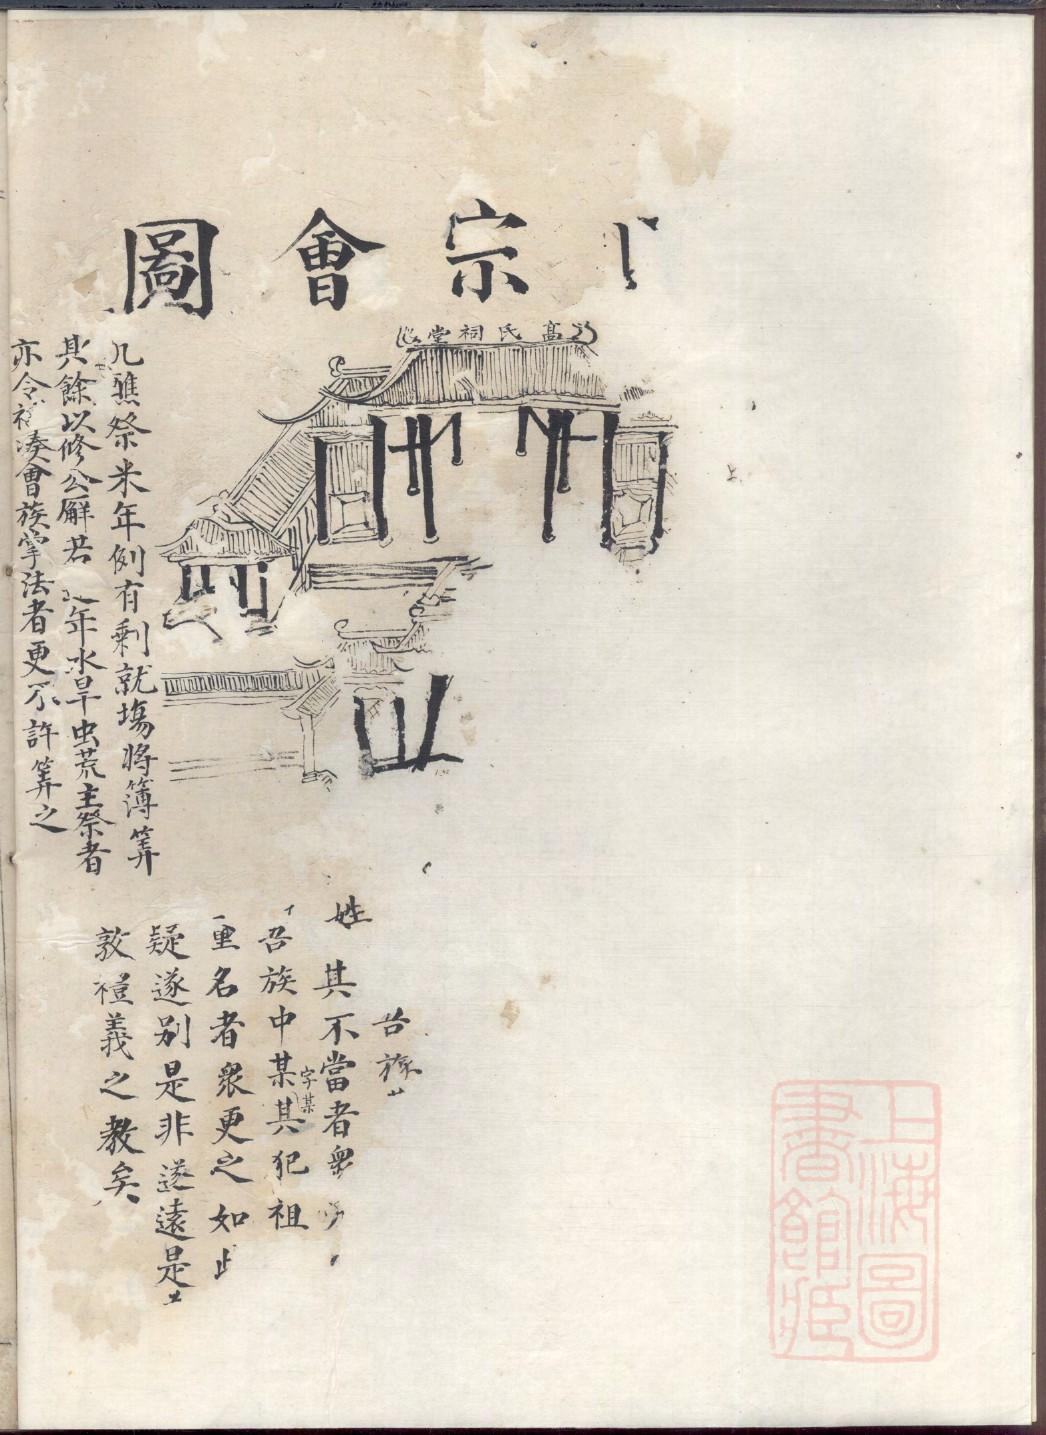 宗會圖
高氏祠堂
凡醮祭米年例有剩就塲將簿筭
其餘以修公廨若年水旱虫荒主祭者
亦令湊會族掌法者更不許筭之
吾族
姓其不當者衆
吾族中某字某其犯祖
重名者衆更之如
疑遂别是非遂遠是
敦禮義之教矣
上海圖書館藏